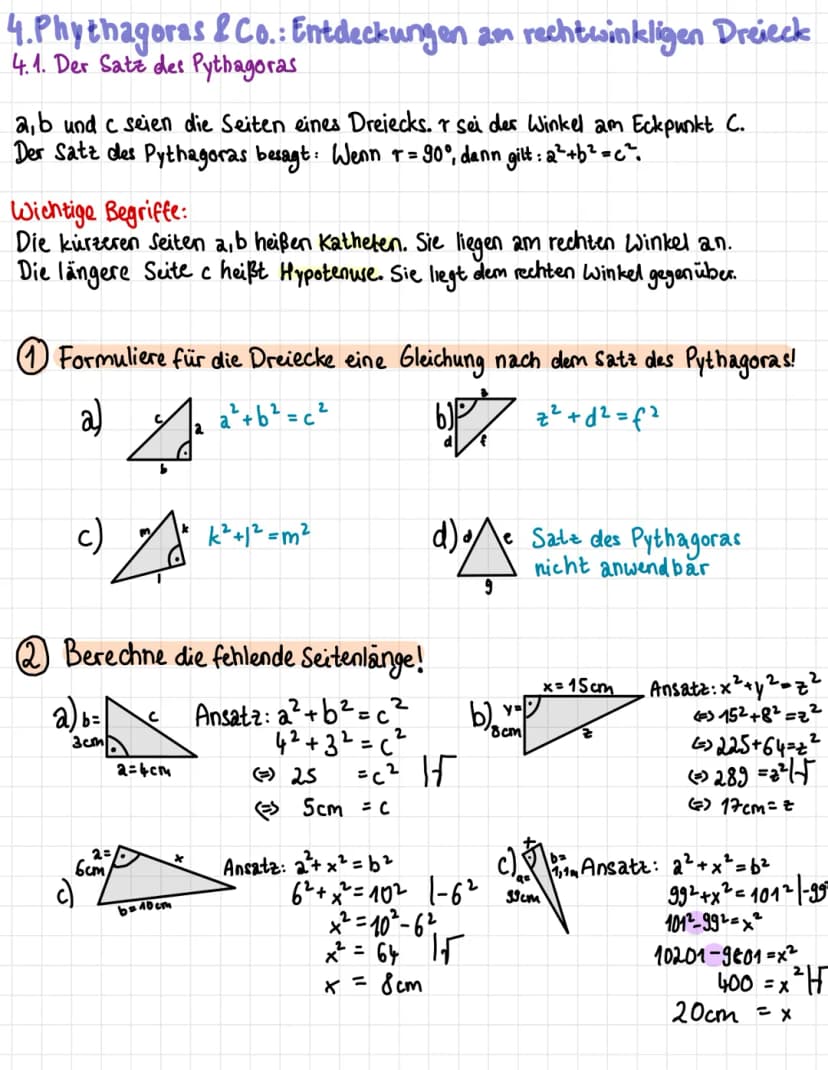 4.Phythagoras & Co.: Entdeckungen am rechtwinkligen Dreieck
4.1. Der Satz des Pythagoras
a,b und c seien die Seiten eines Dreiecks. r sei der Winkel am Eckpunkt C.
Der Satz des Pythagoras besagt: Wenn r = 90°, dann gilt: a²+b²=c².
Wichtige Begriffe:
Die kürzeren Seiten a,b heißen Katheten. Sie liegen am rechten Winkel an.
Die längere Seite c heißt Hypotenuse. Sie liegt dem rechten Winkel gegenüber.
① Formuliere für die Dreiecke eine Gleichung nach dem Satz des Pythagoras!
a) c a b a²+b²=c²
b) d f z²+d²=f²
c) m k l k²+l²=m²
d) d e g Satz des Pythagoras
nicht anwendbar
② Berechne die fehlende Seitenlänge!
a) b=
3cm
c
a=4cm
Ansatz: a²+b²=c²
4²+3²=c²
⇔ 25 =c² |√
⇔ 5cm = c
b) x=15cm
y=
8cm
z
Ansatz: x²+y²=z²
⇔ 15²+8²=z²
⇔ 225+64=z²
⇔ 289 =z² |√
⇔ 17cm= z
c) a=
6cm
x
b=10cm
Ansatz: a²+x²=b²
6²+x²=10² |-6²
x²=10²-6²
x² = 64 |√
x = 8cm
c) x
b=
1,1m
a=
99cm
Ansatz: a²+x²=b²
99²+x²=101² |-99²
101²-99²=x²
10201-9801=x²
400 =x² |√
20cm = x